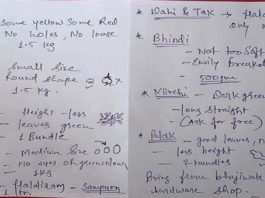 Some yellow Some Red
No holes, No loose
1.5 kg
Small size
Round shape
1.5 kg.
Height - less
leaves green
1 Bundle
Medium size
No eyes of green colour
1 kg
Haldiram
1 ltr.
* Dahi & Tak
only
* Bhindi
- Not too soft
- Easily break
500gm
* Mirchi - Dark green
- long straight
(Ask for free)
* Palak - good leaves, no
less height
- 2 bundles
Bring from bhajiwak
hardware shop.